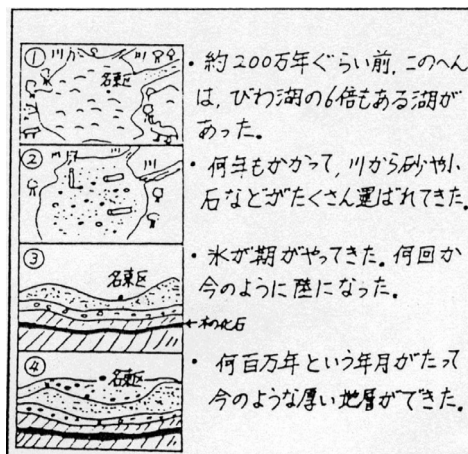 ①
川
川
名東区
・約200万年ぐらい前、このへん
は、びわ湖の6倍もある湖が
あった。
②
川
川
・何年もかかって、川から砂や小
石などがたくさん運ばれてきた。
③
名東区
・氷が期がやってきた。何回か
今のように陸になった。
←木の化石
④
名東区
・何百万年という年月がたって
今のような厚い地層ができた。